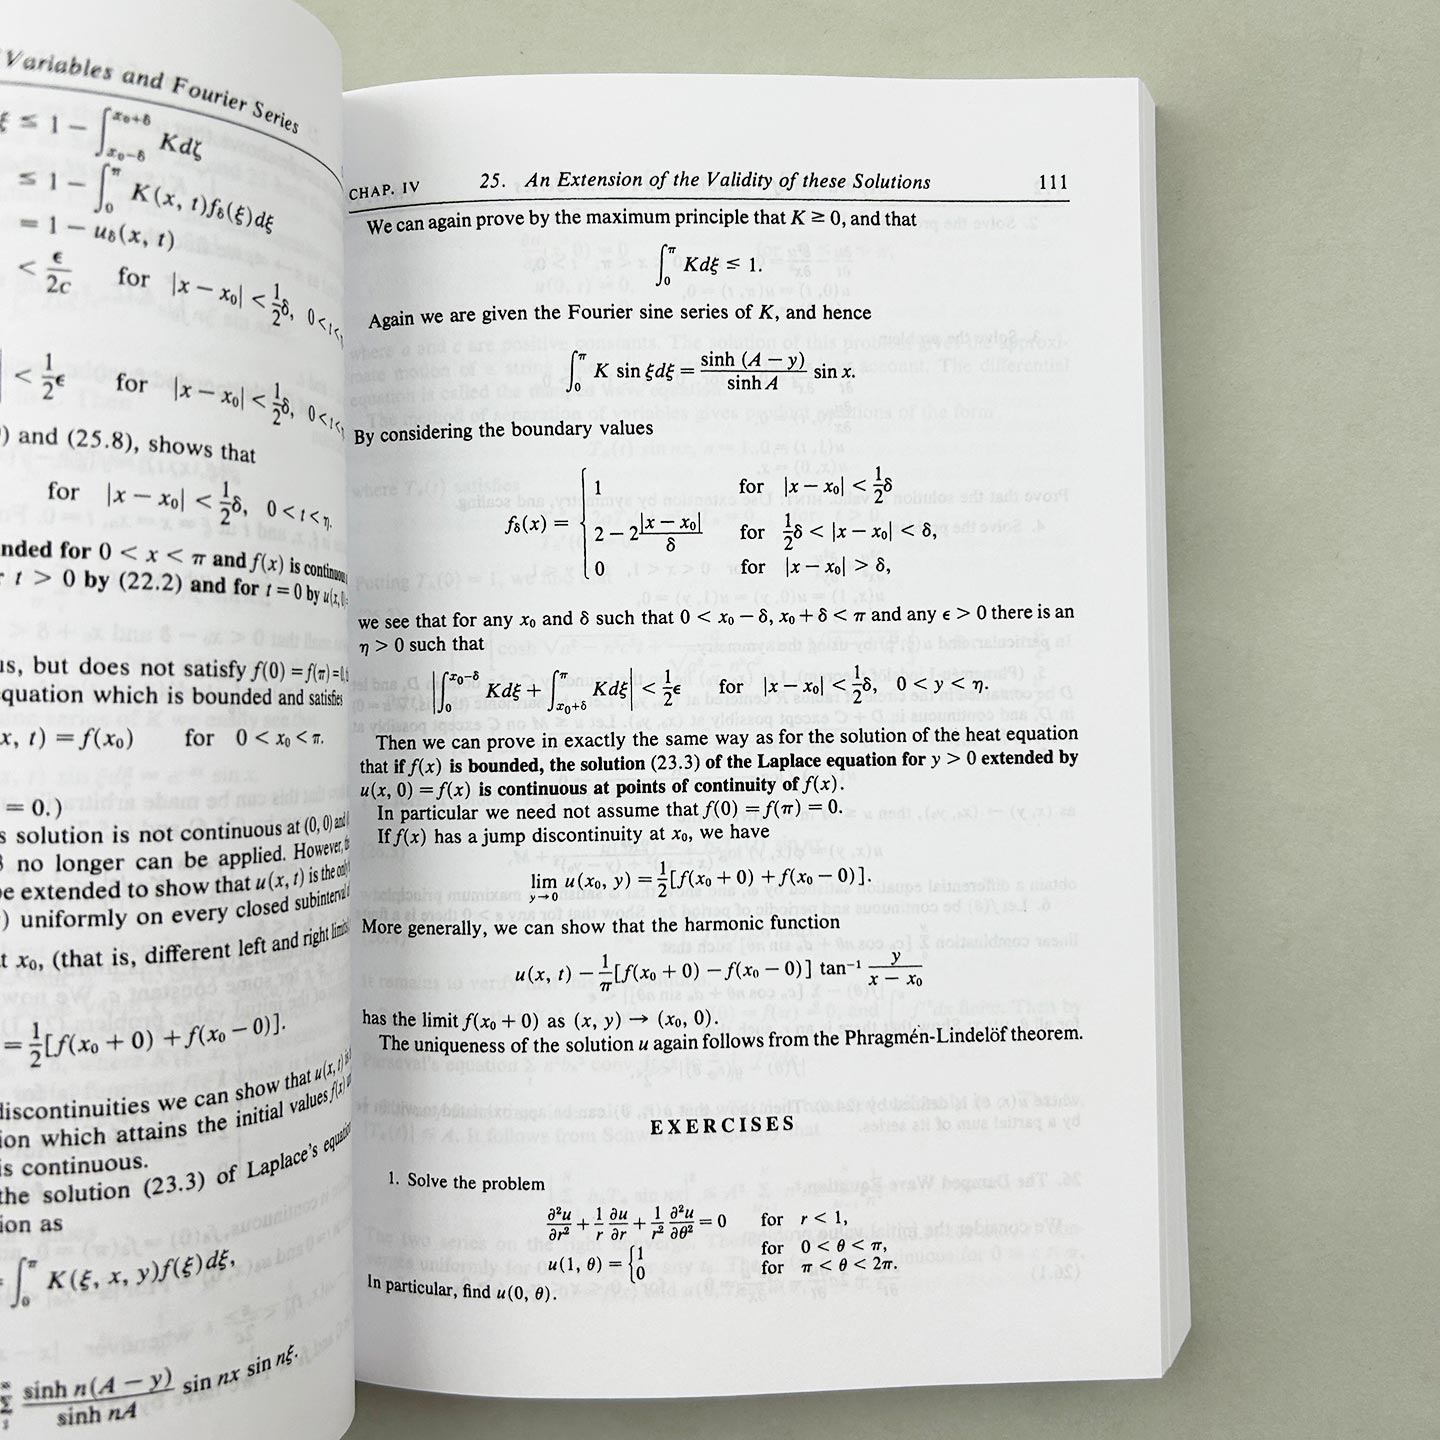 Variables and Fourier Series
ξ ≤ 1 − ∫_{x₀−δ}^{x₀+δ} Kdζ
≤ 1 − ∫_0^π K(x, t)f_δ(ξ)dξ
= 1 − u_δ(x, t)
< ϵ/2c for |x − x₀| < 1/2 δ, 0 < t <
< 1/2 ϵ for |x − x₀| < 1/2 δ, 0 < t <
) and (25.8), shows that
for |x − x₀| < 1/2 δ, 0 < t < η.
nded for 0 < x < π and f(x) is continuous
t > 0 by (22.2) and for t = 0 by u(x, 0)
us, but does not satisfy f(0) = f(π) = 0,
quation which is bounded and satisfies
x, t) = f(x₀) for 0 < x₀ < π.
= 0.)
s solution is not continuous at (0, 0) and
no longer can be applied. However,
be extended to show that u(x, t) is the only
) uniformly on every closed subinterval
t x₀, (that is, different left and right limits
= 1/2 [f(x₀ + 0) + f(x₀ − 0)].
discontinuities we can show that u(x, t) is
ion which attains the initial values f(x)
is continuous.
the solution (23.3) of Laplace's equation
ion as
∫_0^π K(ξ, x, y)f(ξ)dξ,
Σ sinh n(A − y)/sinh nA sin nx sin nξ.
CHAP. IV 25. An Extension of the Validity of these Solutions 111
We can again prove by the maximum principle that K ≥ 0, and that
∫_0^π Kdξ ≤ 1.
Again we are given the Fourier sine series of K, and hence
∫_0^π K sin ξdξ = sinh (A − y)/sinh A sin x.
By considering the boundary values
f_δ(x) = { 1 for |x − x₀| < 1/2 δ
2 − 2 |x − x₀|/δ for 1/2 δ < |x − x₀| < δ,
0 for |x − x₀| > δ,
we see that for any x₀ and δ such that 0 < x₀ − δ, x₀ + δ < π and any ϵ > 0 there is an
η > 0 such that
|∫_0^{x₀−δ} Kdξ + ∫_{x₀+δ}^π Kdξ| < 1/2 ϵ for |x − x₀| < 1/2 δ, 0 < y < η.
Then we can prove in exactly the same way as for the solution of the heat equation
that if f(x) is bounded, the solution (23.3) of the Laplace equation for y > 0 extended by
u(x, 0) = f(x) is continuous at points of continuity of f(x).
In particular we need not assume that f(0) = f(π) = 0.
If f(x) has a jump discontinuity at x₀, we have
lim_{y→0} u(x₀, y) = 1/2 [f(x₀ + 0) + f(x₀ − 0)].
More generally, we can show that the harmonic function
u(x, t) − 1/π [f(x₀ + 0) − f(x₀ − 0)] tan⁻¹ y/(x − x₀)
has the limit f(x₀ + 0) as (x, y) → (x₀, 0).
The uniqueness of the solution u again follows from the Phragmén-Lindelöf theorem.
EXERCISES
1. Solve the problem
∂²u/∂r² + 1/r ∂u/∂r + 1/r² ∂²u/∂θ² = 0 for r < 1,
u(1, θ) = { 1 for 0 < θ < π,
0 for π < θ < 2π.
In particular, find u(0, θ).